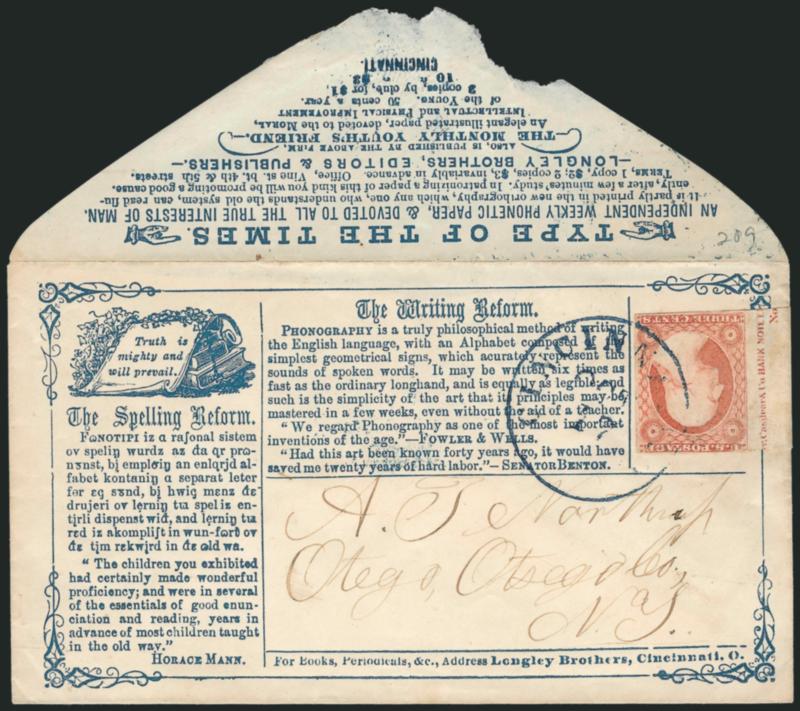 TYPE OF THE TIMES.
AN INDEPENDENT WEEKLY PHONETIC PAPER, & DEVOTED TO ALL THE TRUE INTERESTS OF MAN.
It is partly printed in the new orthography, which any one, who understands the old system, can read flu-
ently, after a few minutes' study. In patronizing a paper of this kind you will be promoting a good cause.
TERMS, 1 copy, $2; 2 copies, $3, invariably in advance. Office, Vine st. bt. 4th & 5th streets.
—LONGLEY BROTHERS, EDITORS & PUBLISHERS.—
ALSO, IS PUBLISHED BY THE ABOVE FIRM,
—THE MONTHLY YOUTH'S FRIEND.—
An elegant illustrated paper, devoted to the MORAL,
INTELLECTUAL and PHYSICAL IMPROVEMENT
of the YOUNG. 50 cents a year.
3 copies, by club, for $1,
10
CINCINNATI.
209
Truth is
mighty and
will prevail.
The Spelling Reform.
FɷNOTIPI iz a raʃonal sistem
ov speliŋ wurdz az đa qr prɷ-
nʌnst, bį emploįŋ an enlqrjd al-
fabet kontaniŋ a separat leter
fɵr eç sʌnd, bį hwiç menz đe
drujeri ov lęrniŋ tu spel iz en-
tįrli dispenst wid, and lęrniŋ tu
red iz akompliʃt in wun-fɵrt ov
đe tįm rekwįrd in đe ɷld wa.
"The children you exhibited
had certainly made wonderful
proficiency; and were in several
of the essentials of good enun-
ciation and reading, years in
advance of most children taught
in the old way."
HORACE MANN.
The Writing Reform.
PHONOGRAPHY is a truly philosophical method of writing
the English language, with an Alphabet composed of the
simplest geometrical signs, which acurately represent the
sounds of spoken words. It may be written six times as
fast as the ordinary longhand, and is equally as legible and
such is the simplicity of the art that its principles may be
mastered in a few weeks, even without the aid of a teacher.
"We regard Phonography as one of the most important
inventions of the age."—FOWLER & WELLS.
"Had this art been known forty years ago, it would have
saved me twenty years of hard labor."—SENATOR BENTON.
U.S. POSTAGE
THREE CENTS
A. T. Northup
Otego, Otsego Co,
N.Y.
For Books, Periodicals, &c., Address Longley Brothers, Cincinnati, O.